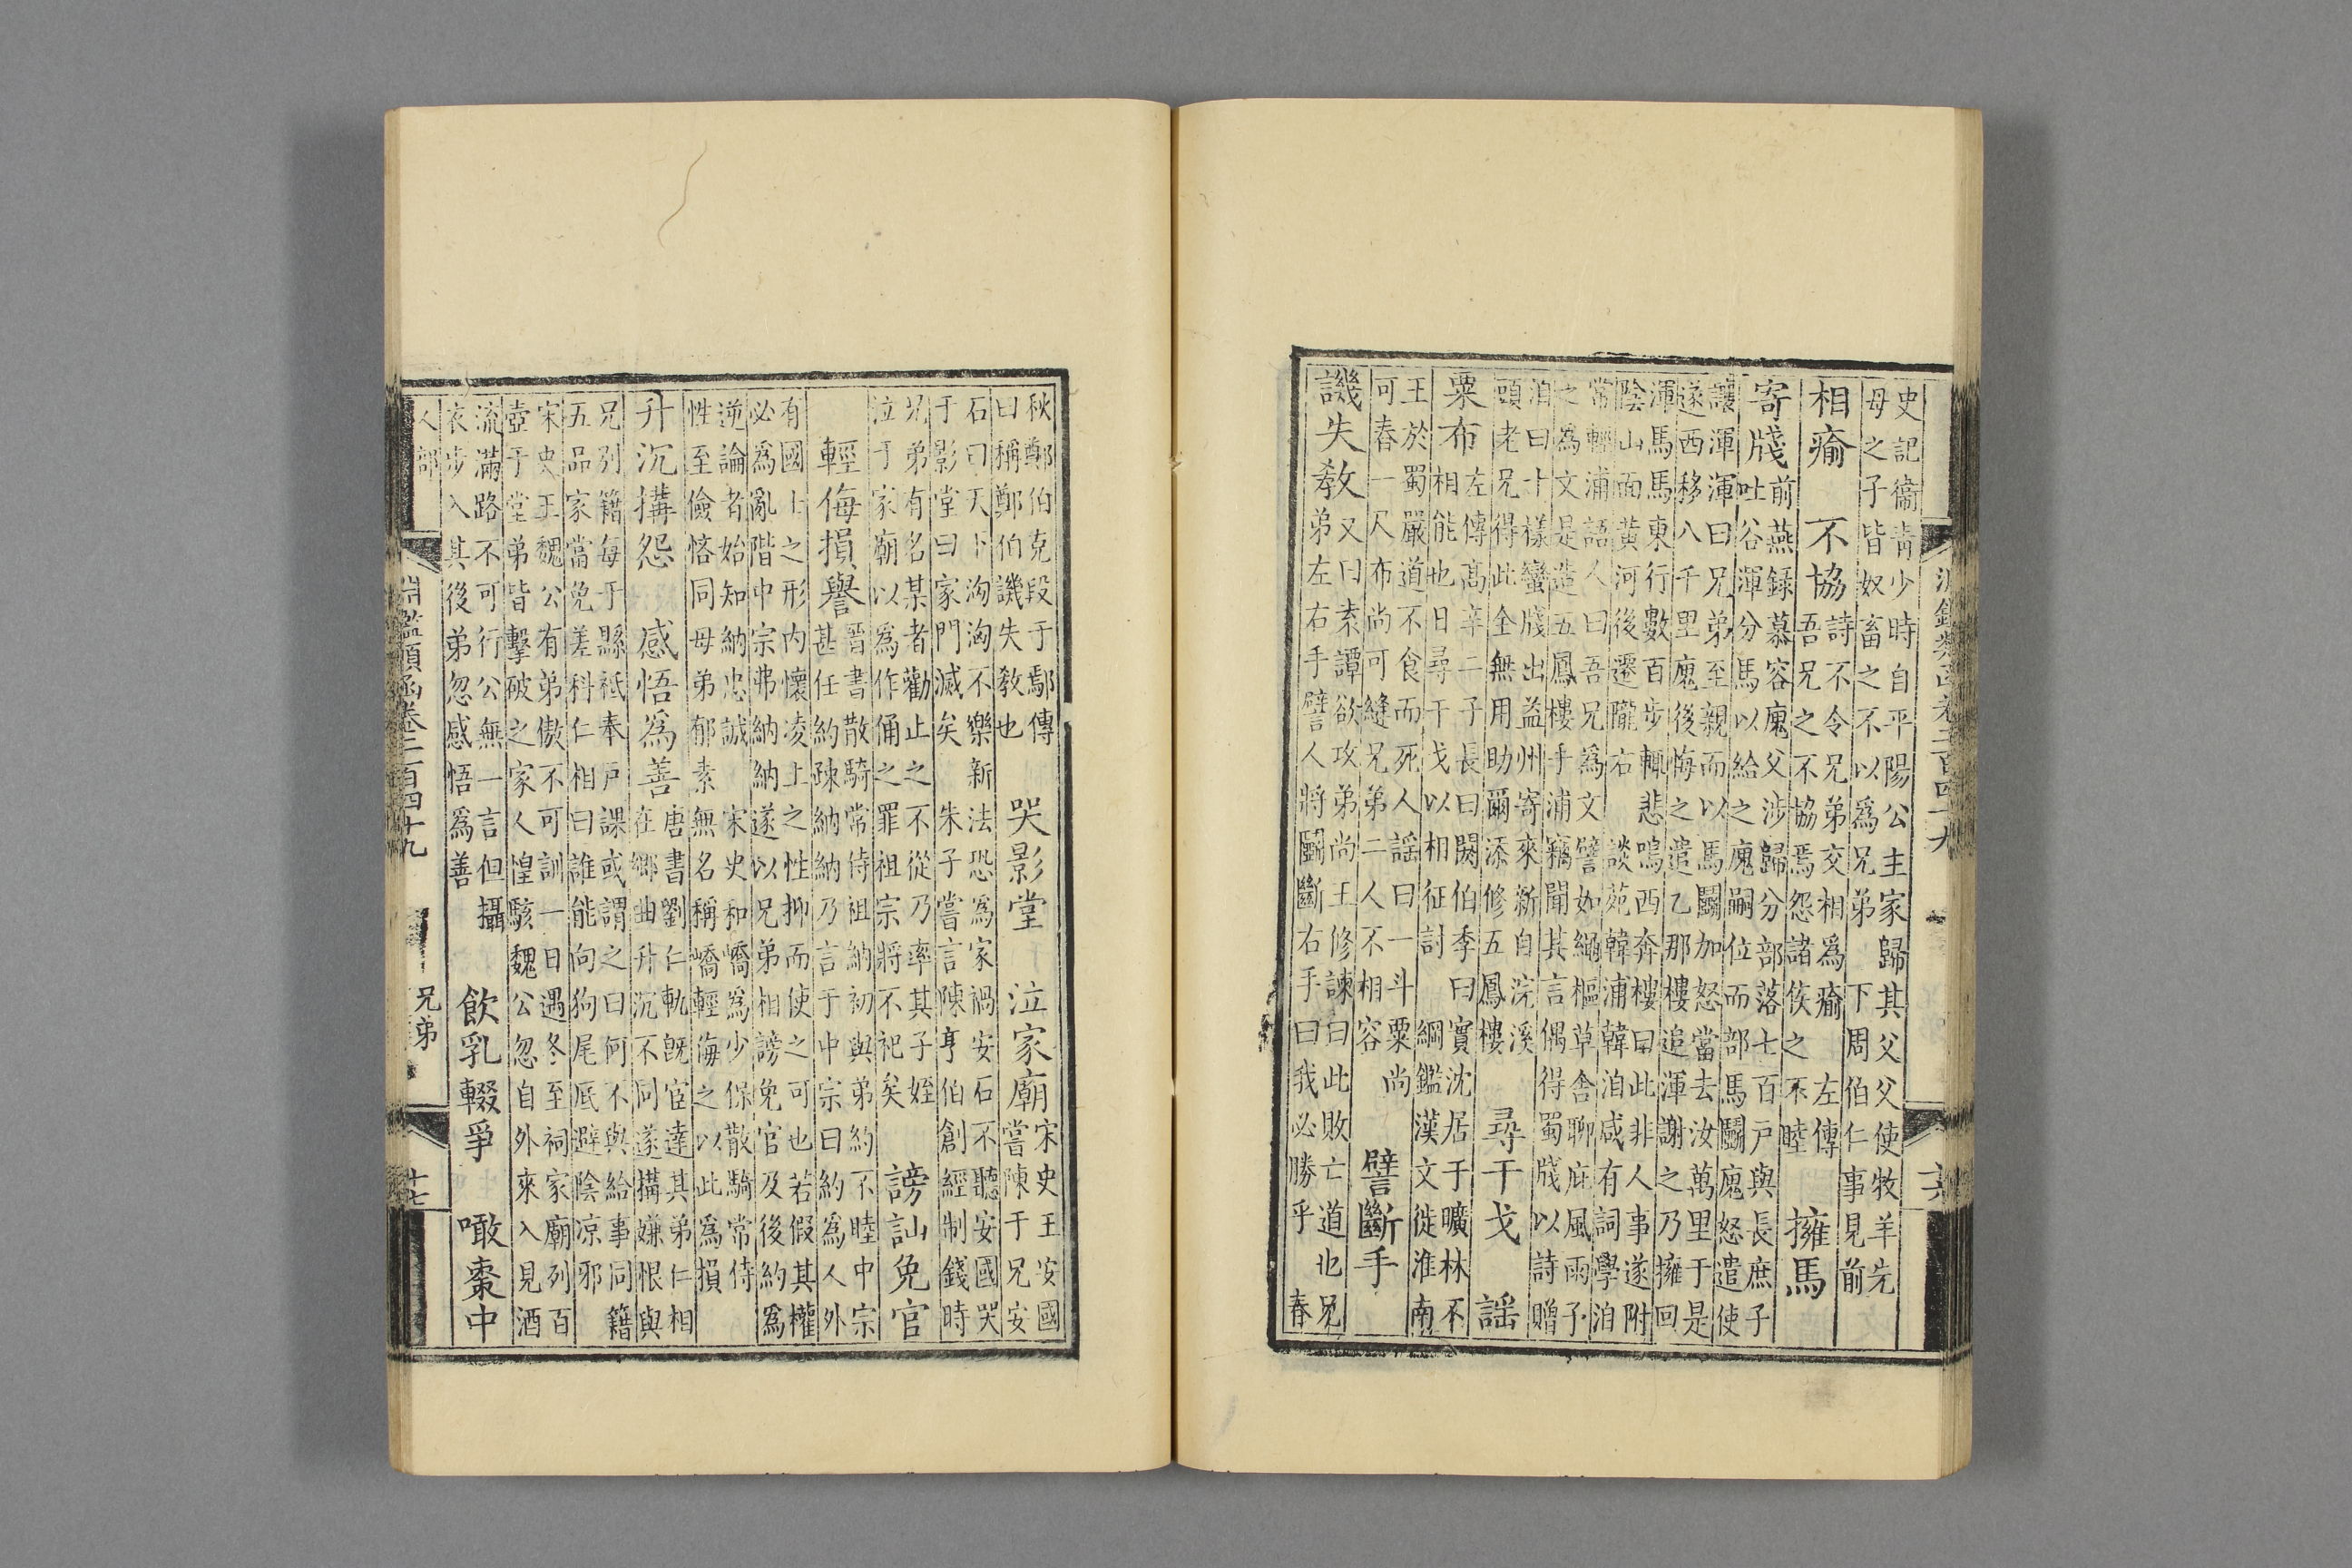 淵鑑類函卷二百四十九
十六
史記衞青少時自平陽公主家歸其父父使牧羊先
母之子皆奴畜之不以爲兄弟 下周伯仁事見前
相瘉 不協
詩不令兄弟交相爲瘉 左傳
吾兄之不協焉怨諸侯之不睦
擁馬
寄牋
前燕錄慕容廆父涉歸分部落七百戶與長庶子
吐谷渾分馬以給之廆嗣位而部馬鬭廆怒遣使
讓渾渾曰兄弟至親而以馬鬭加怒當去汝萬里于是
遂西移八千里廆後悔之遣乙那樓追渾謝之乃擁回
渾馬馬東行數百步輒悲鳴西奔樓曰此非人事遂附
陰山而黄河後遷隴右 談苑韓浦韓洎咸有詞學洎
常輕浦語人曰吾兄爲文譬如繩樞草舍聊庇風雨予
之爲文是造五鳳樓手浦竊聞其言偶得蜀牋以詩贈
洎曰十樣蠻牋出益州寄來新自浣溪
頭老兄得此全無用助爾添修五鳳樓
尋干戈 謡
粟布
左傳高辛二子長曰閼伯季曰實沈居于曠林不
相能也日尋干戈以相征討 綱鑑漢文徙淮南
王於蜀嚴道不食而死人謡曰一斗粟尚
可舂一尺布尚可縫兄弟二人不相容
譬斷手
譏失教
又曰袁譚欲攻弟尚王修諫曰此敗亡道也兄
弟左右手譬人將鬭斷右手曰我必勝乎 春
秋鄭伯克段于鄢傳
曰稱鄭伯譏失教也
哭影堂 泣家廟
宋史王安國
嘗陳于兄安
石曰天下洶洶不樂新法恐爲家禍安石不聽安國哭
于影堂曰家門滅矣 朱子嘗言陳亨伯創經制錢時
兄弟有名某者勸止之不從乃率其子姪
泣于家廟以爲作俑之罪祖宗將不祀矣
謗訕免官
輕侮損譽
晉書散騎常侍祖納初與弟約不睦中宗
甚任約疎納納乃言于中宗曰約爲人外
有國上之形内懷凌上之性抑而使之可也若假其權
必爲亂階中宗弗納納遂以兄弟相謗免官及後約爲
逆論者始知納忠誠 宋史和嶠爲少保散騎常侍
性至儉悋同母弟郁素無名稱嶠輕侮之以此爲損
升沉搆怨 感悟爲善
唐書劉仁軌旣官達其弟仁相
在鄉曲升沉不同遂搆嫌恨與
兄別籍每于縣祗奉戶課或謂之曰何不與給事同籍
五品家當免差科仁相曰誰能向狗尾底避陰凉邪
宋史王魏公有弟傲不可訓一日遇冬至祠家廟列百
壺于堂弟皆擊破之家人惶駭魏公忽自外來入見酒
流滿路不可行公無一言但攝
衣步入其後弟忽感悟爲善
飲乳輟爭 噉棗中
人部
淵鑑類函卷二百四十九
兄弟
十七